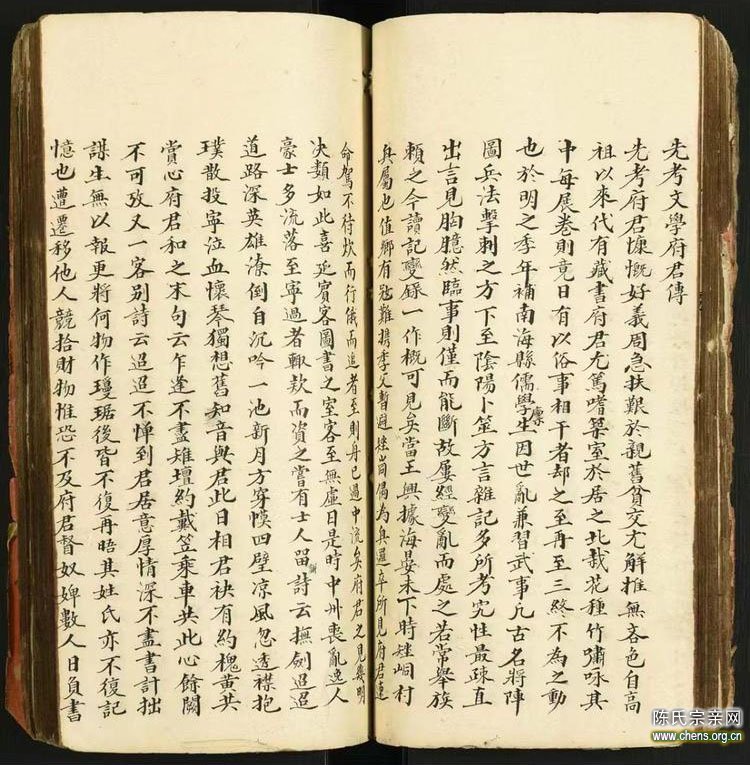 先考文學府君傳
先考府君慷慨好義周急扶艱於親舊貧交尤解推無吝色自高
祖以來代有藏書府君尤篤嗜築室於居之北栽花種竹嘯咏其
中每展卷則竟日有以俗事相干者却之至再至三終不為之動
也於明之季年補南海縣儒學生廪因世亂兼習武事凡古名將陣
圖兵法擊刺之方下至陰陽卜筮方言雜記多所考究性最疎直
出言見胸臆然臨事則僅而能斷故屢經變亂而處之若常舉族
賴之今讀記變錄一作概可見矣當王興據海晏未下時
峒村
兵屬也值鄉有
難携季父暫避
山同屬為兵邏卒所見府君遽
命駕不待炊而行俄而追者至則舟已過中流矣府君之見幾明
决類如此喜延賓客圖書之室客至無虛日是時中州喪亂逸人
豪士多流落至寧過者輙款而資之嘗有士人留
詩云撫劍迢迢
道路深英雄潦倒自沉吟一池新月方穿幙四壁凉風忽透襟抱
璞散投寧泣血懷琴獨想舊知音與君此日相君袂有約槐黃共
賞心府君和之末句云乍逢不盡雄壇約戴笠乘車共此心餘闕
不可攷又一客别詩云迢迢不憚到君居意厚情深不盡書計拙
謀生無以報更將何物作瓊琚後皆不復再晤其姓氏亦不復記
憶也遭遷移他人競拾財物惟恐不及府君督奴婢數人日負書
陈氏宗亲网
www.chens.org.cn